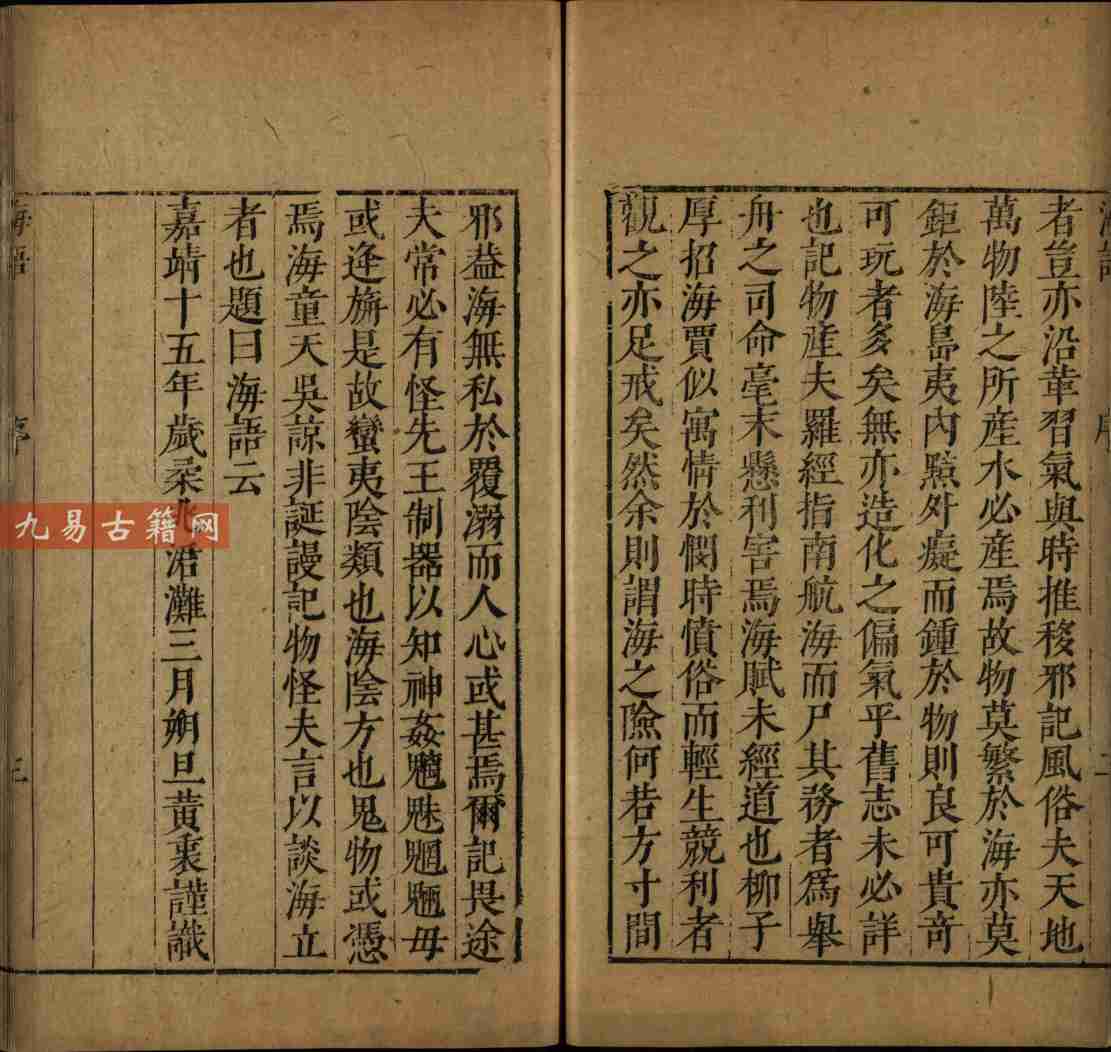 者豈亦沿華習氣與時推移邪記風俗夫天地
萬物陸之所産水必産焉故物莫繁於海亦莫
鉅於海島夷內黠外癡而鍾於物則良可貴奇
可玩者多矣無亦造化之偏氣乎舊志未必詳
也記物産夫羅經指南航海而尸其務者爲舉
舟之司命毫末懸利害焉海賦未經道也柳子
厚招海賈似寓情於憫時憤俗而輕生競利者
觀之亦足戒矣然余則謂海之險何若方寸間
邪葢海無私於覆溺而人心或甚焉爾記畏途
夫常必有怪先王制器以知神姦魑魅魍魎毋
或逢旃是故蠻夷陰類也海陰方也鬼物或憑
焉海童天吳諒非誕謾記物怪夫言以談海立
者也題曰海語云
嘉靖十五年歲柔兆涒灘三月朔旦黃衷謹識
海語
序
三
九易古籍网